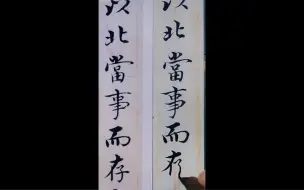 以北當事而存
以北當事而存